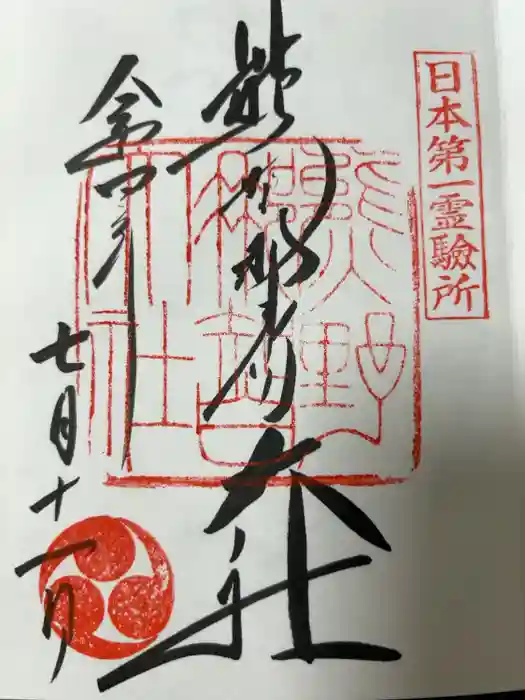 日本第一霊験所
熊野那智大社
令和四年
七月十一日
熊野
那智
大社